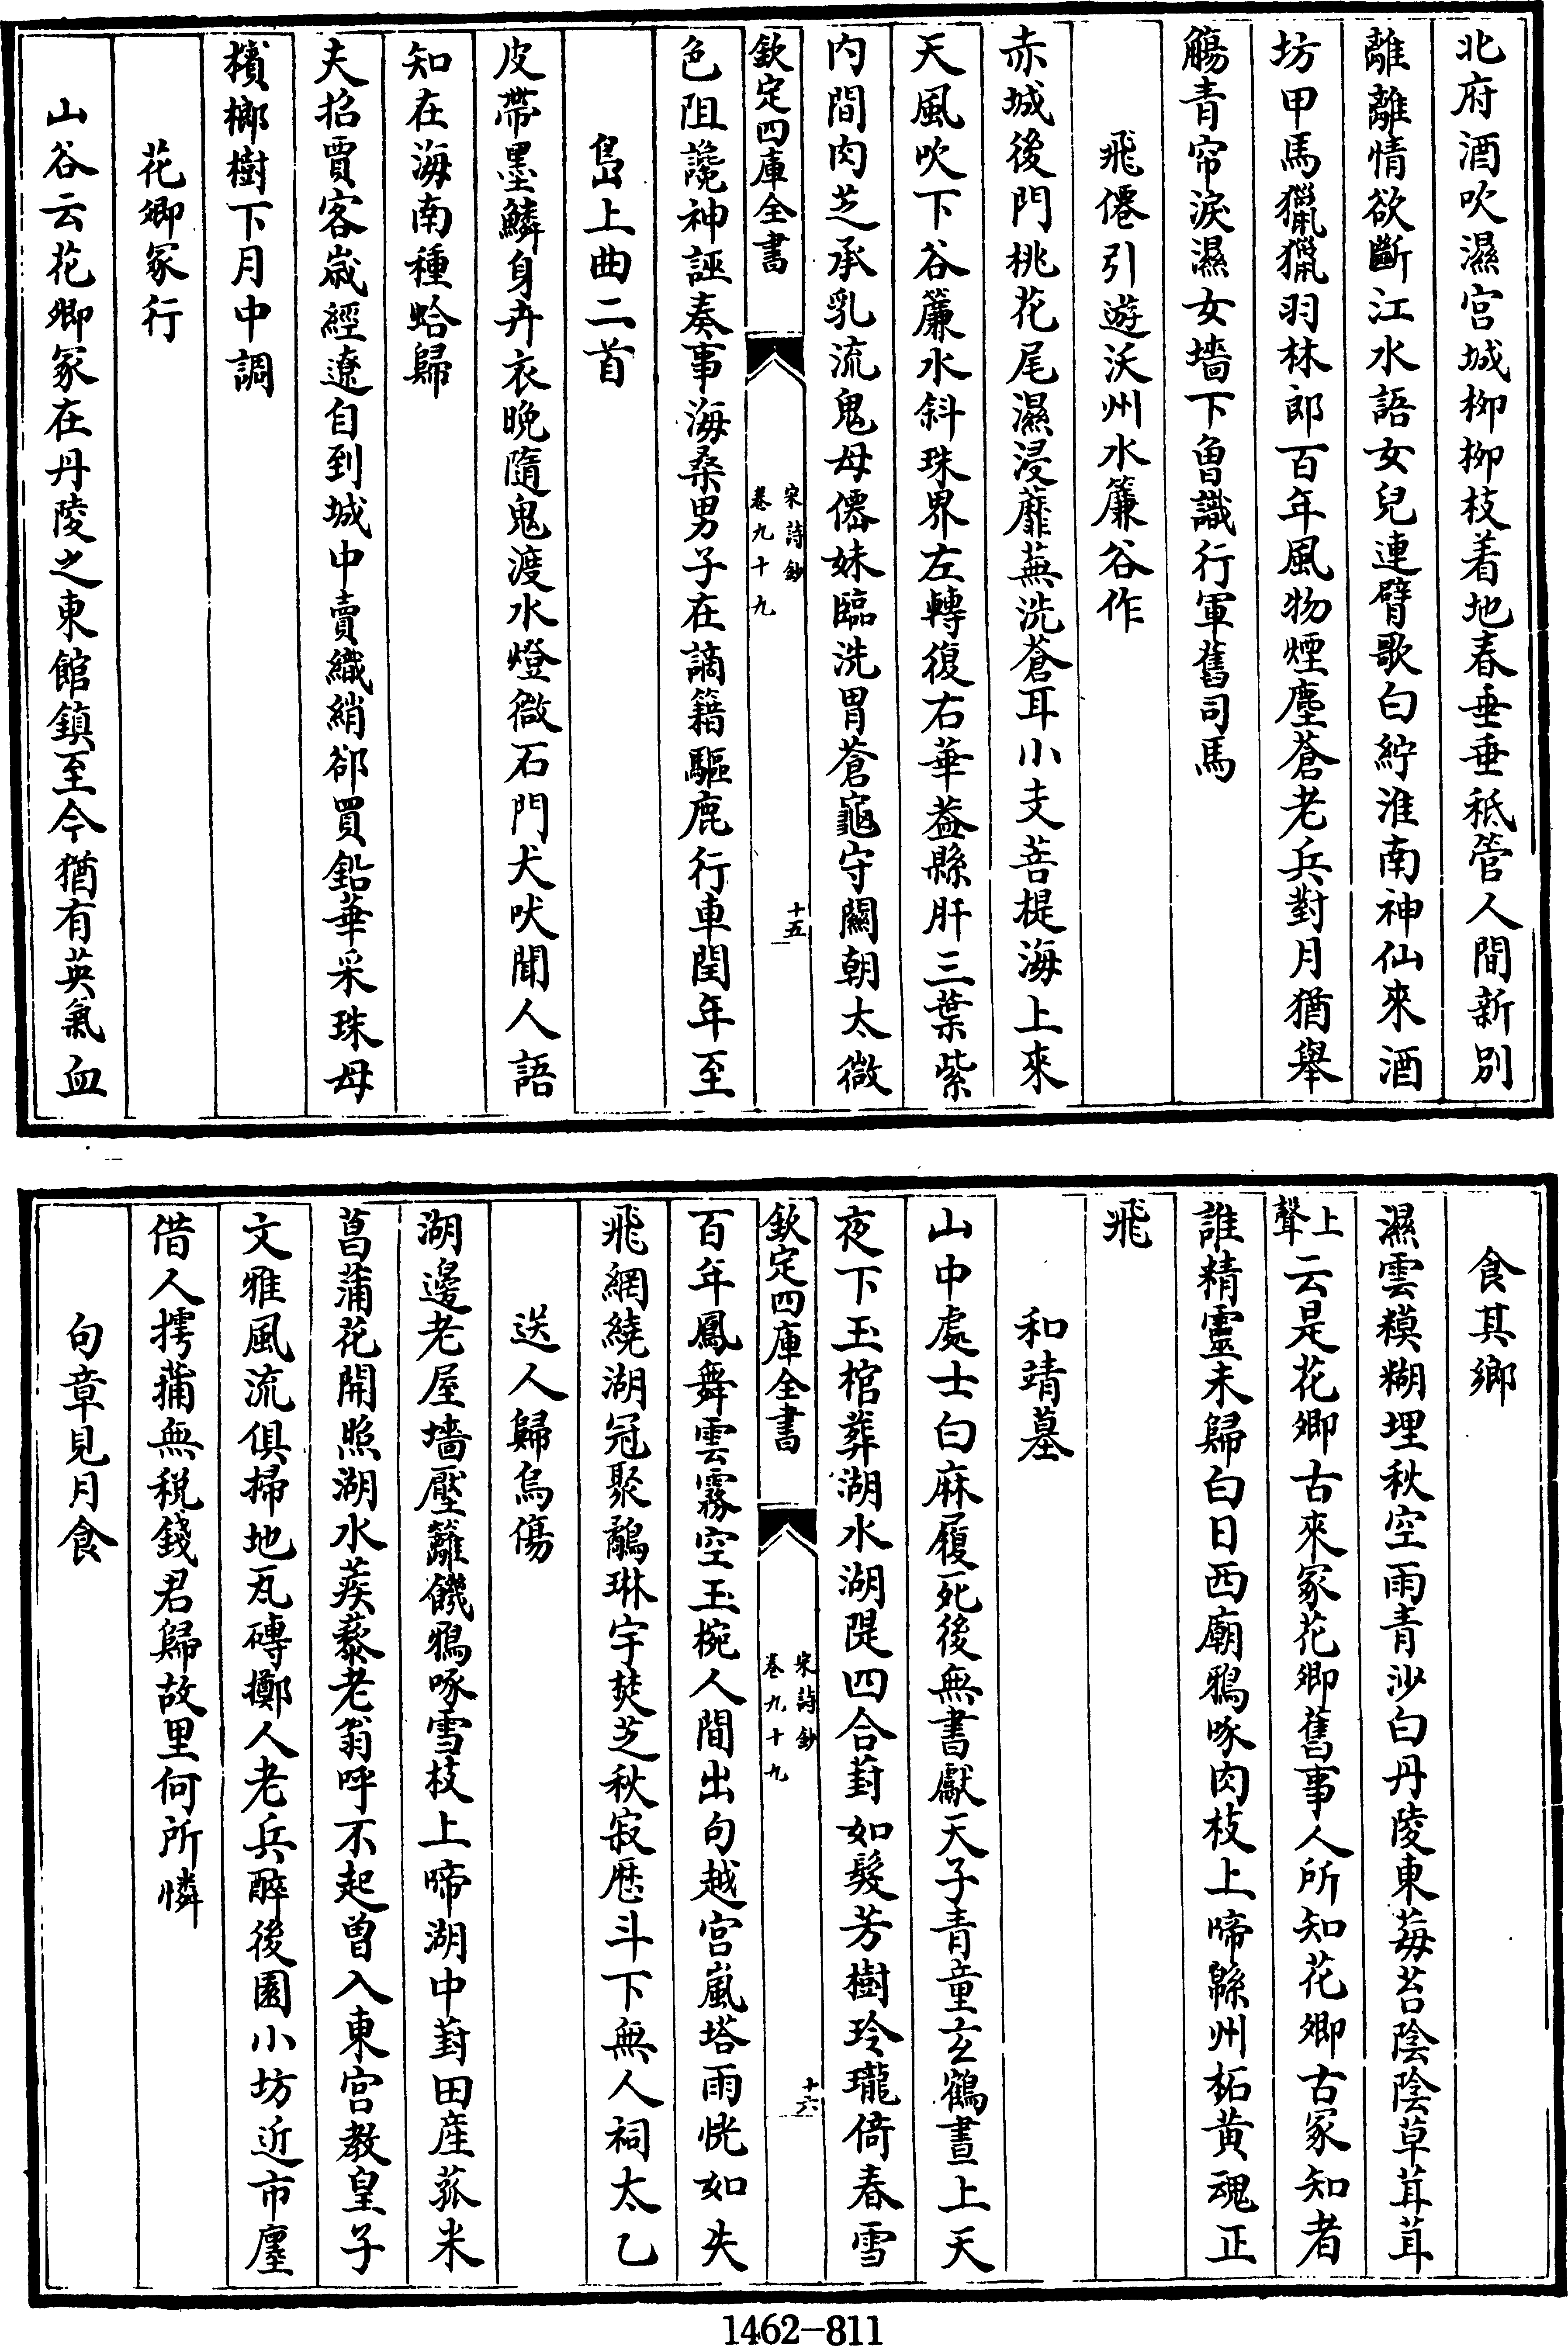 北府酒吹濕宫城栁栁枝着地春垂垂秪管人間新别
離離情欲斷江水語女兒連臂歌白紵淮南神仙來酒
坊甲馬獵獵羽林郎百年風物煙塵蒼老兵對月猶舉
觴青帘淚濕女墻下曽識行軍舊司馬
飛僊引遊沃州水簾谷作
赤城後門桃花尾濕浸蘼蕪洗蒼耳小支菩提海上來
天風吹下谷簾水斜珠界左轉復右華葢縣肝三葉紫
内間肉芝承乳流鬼母僊妹臨洗胃蒼龜守闗朝太微
欽定四庫全書
宋詩鈔
卷九十九
十五
色阻讒神誣奏事海桑男子在謫籍驅鹿行車閏年至
島上曲二首
皮帶墨鱗身卉衣晚隨鬼渡水燈微石門犬吠聞人語
知在海南種蛤歸
夫招賈客嵗經遼自到城中賣織綃郤買鉛華采珠母
檳榔樹下月中調
花卿冢行
山谷云花卿冢在丹陵之東館鎮至今猶有英氣血
食其鄉
濕雲糢糊埋秋空雨青沙白丹陵東莓苔陰陰草茸茸
上
聲
云是花卿古來冢花卿舊事人所知花卿古冢知者
誰精靈未歸白日西廟鴉啄肉枝上啼緜州柘黄魂正
飛
和靖墓
山中處士白麻履死後無書獻天子青童玄鶴晝上天
夜下玉棺葬湖水湖隄四合葑如髮芳樹玲瓏倚春雪
欽定四庫全書
宋詩鈔
卷九十九
十六
百年鳳舞雲霧空玉椀人間出句越宫嵐塔雨恍如失
飛網繞湖冠聚鷸琳宇焚芝秋寂歴斗下無人祠太乙
送人歸烏傷
湖邊老屋墻壓籬饑鴉啄雪枝上啼湖中葑田産菰米
菖蒲花開照湖水蒺藜老翁呼不起曽入東宫教皇子
文雅風流俱掃地瓦磚擲人老兵醉後園小坊近市廛
借人摴蒱無税錢君歸故里何所憐
句章見月食
1462-811